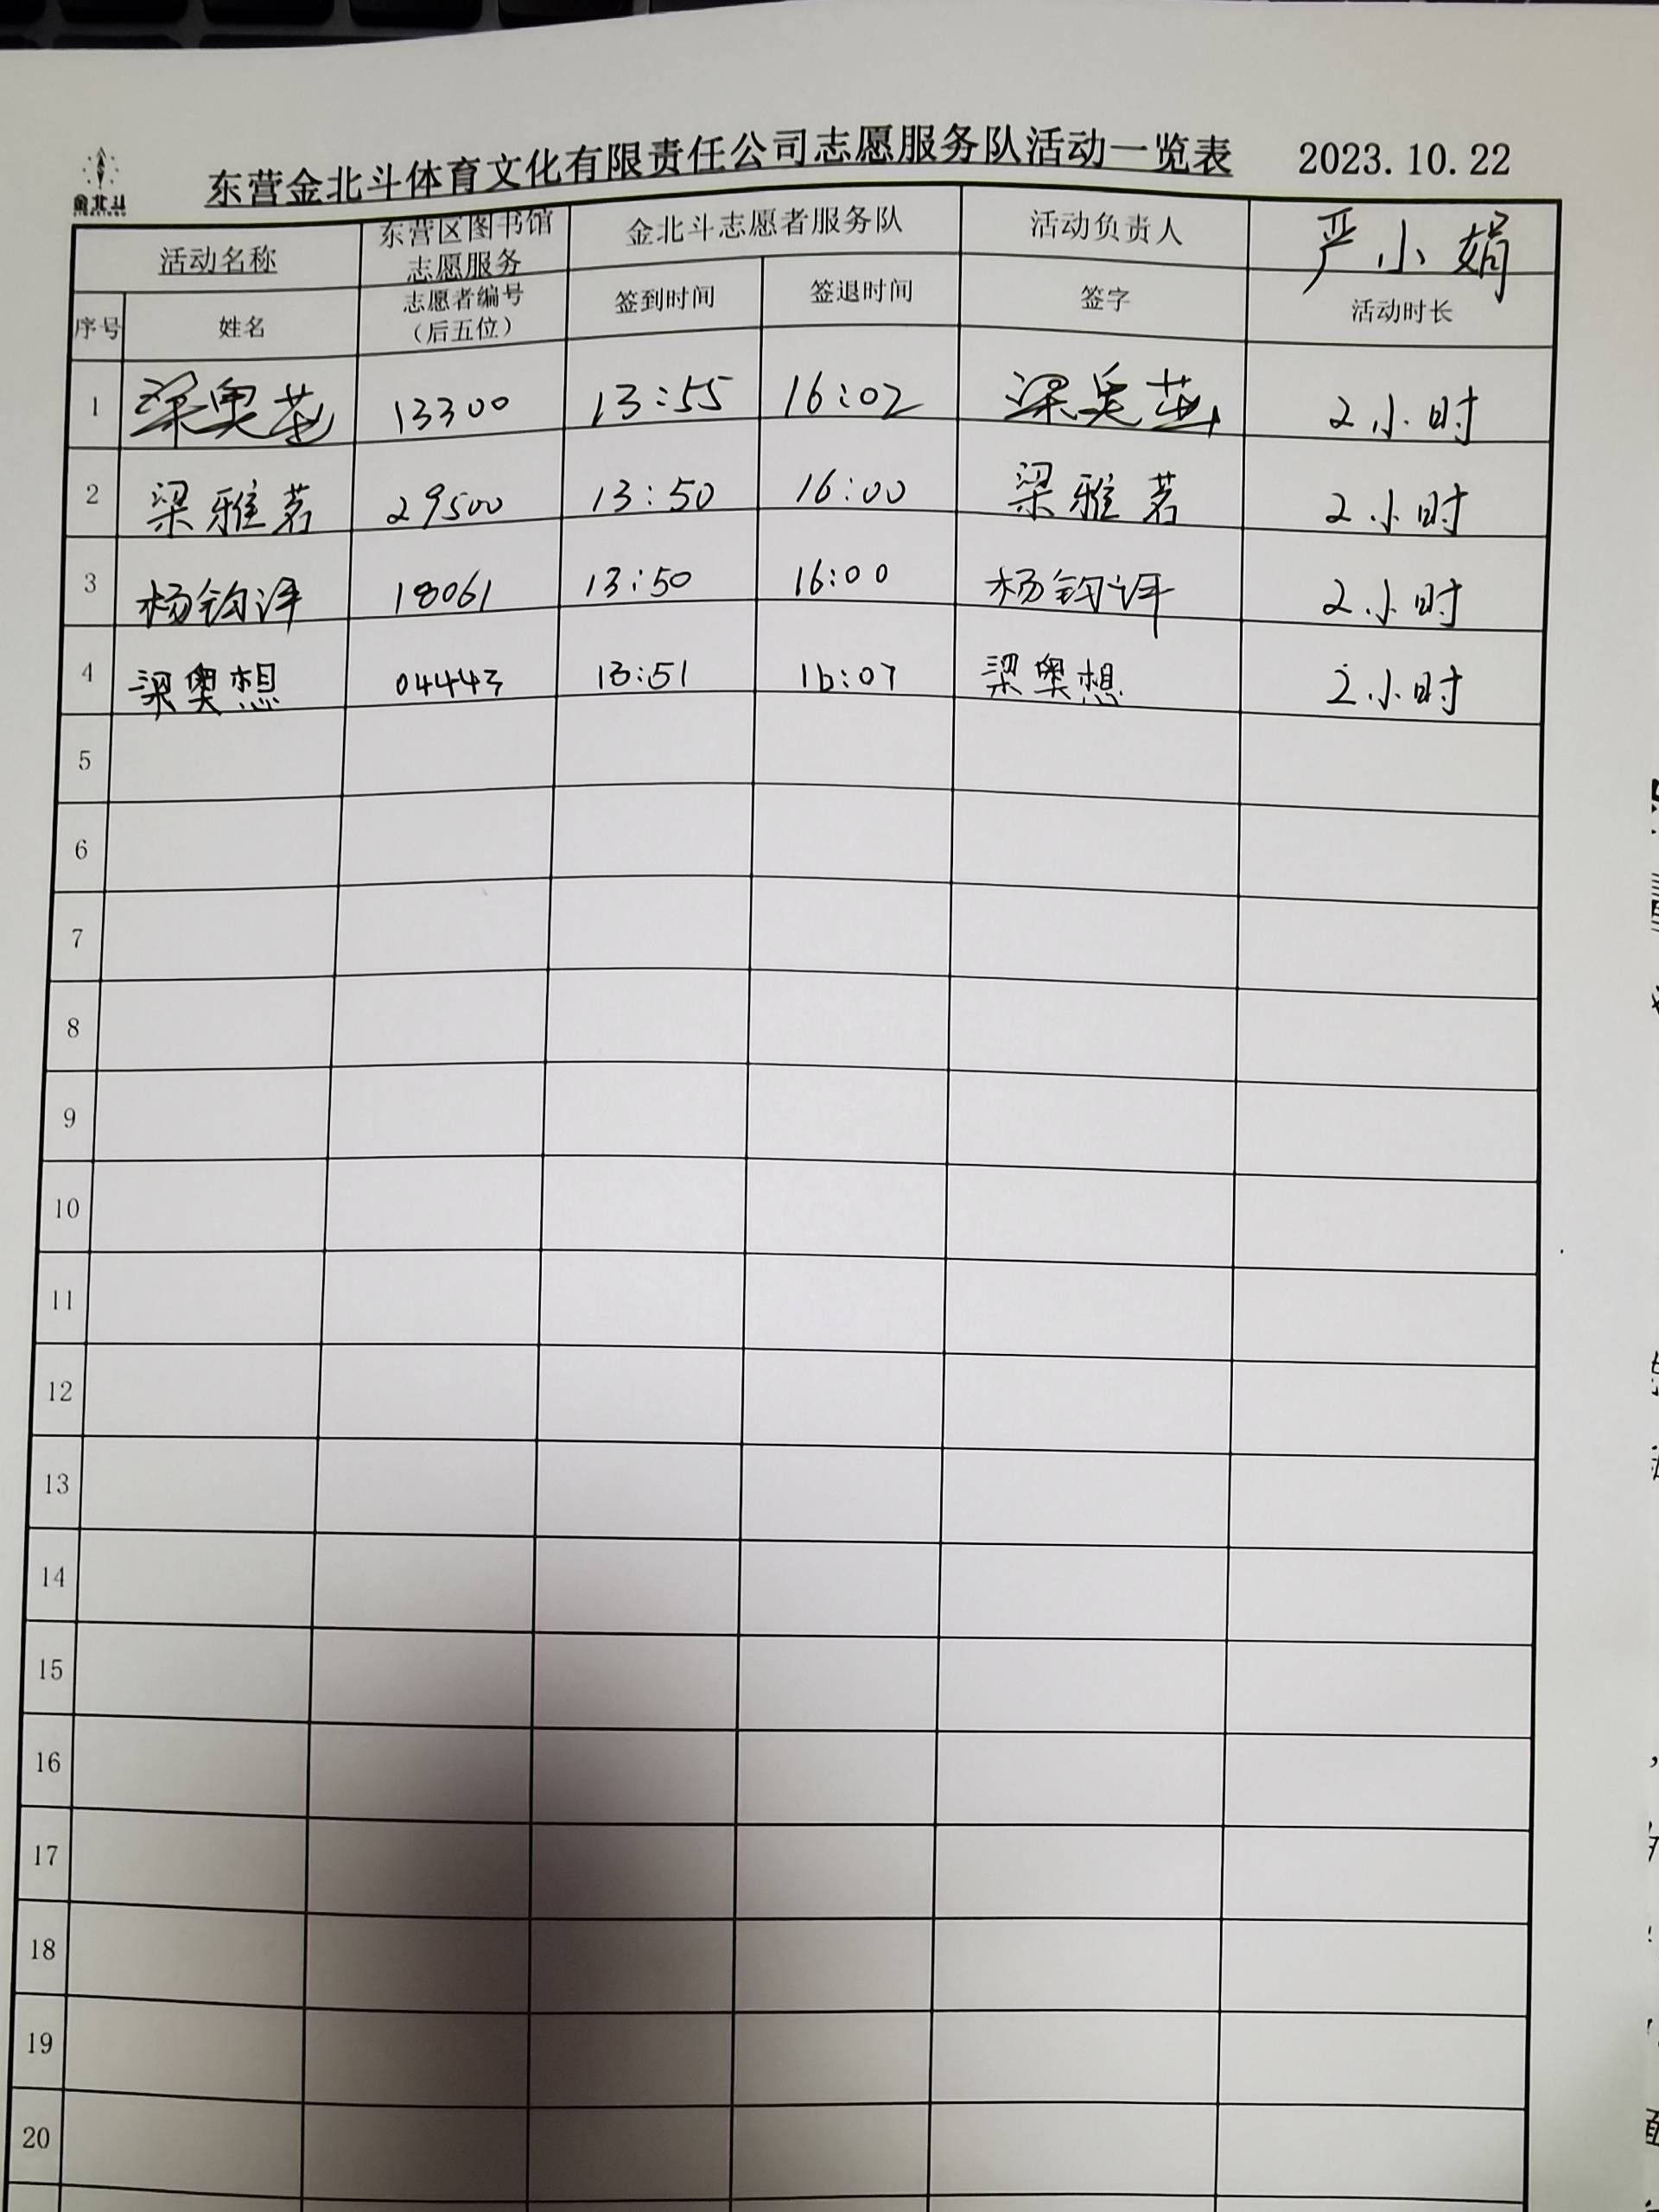 东营金北斗体育文化有限责任公司志愿服务队活动一览表 2023.10.22
金北斗
活动名称 东营区图书馆志愿服务 金北斗志愿者服务队 活动负责人 严小娟
序号 姓名 志愿者编号（后五位） 签到时间 签退时间 签字 活动时长
1 梁奥 13300 13:55 16:02 梁奥 2小时
2 梁雅茗 29500 13:50 16:00 梁雅茗 2小时
3 杨钧 18061 13:50 16:00 杨钧 2小时
4 梁奥想 04443 13:51 16:07 梁奥想 2小时
5
6
7
8
9
10
11
12
13
14
15
16
17
18
19
20